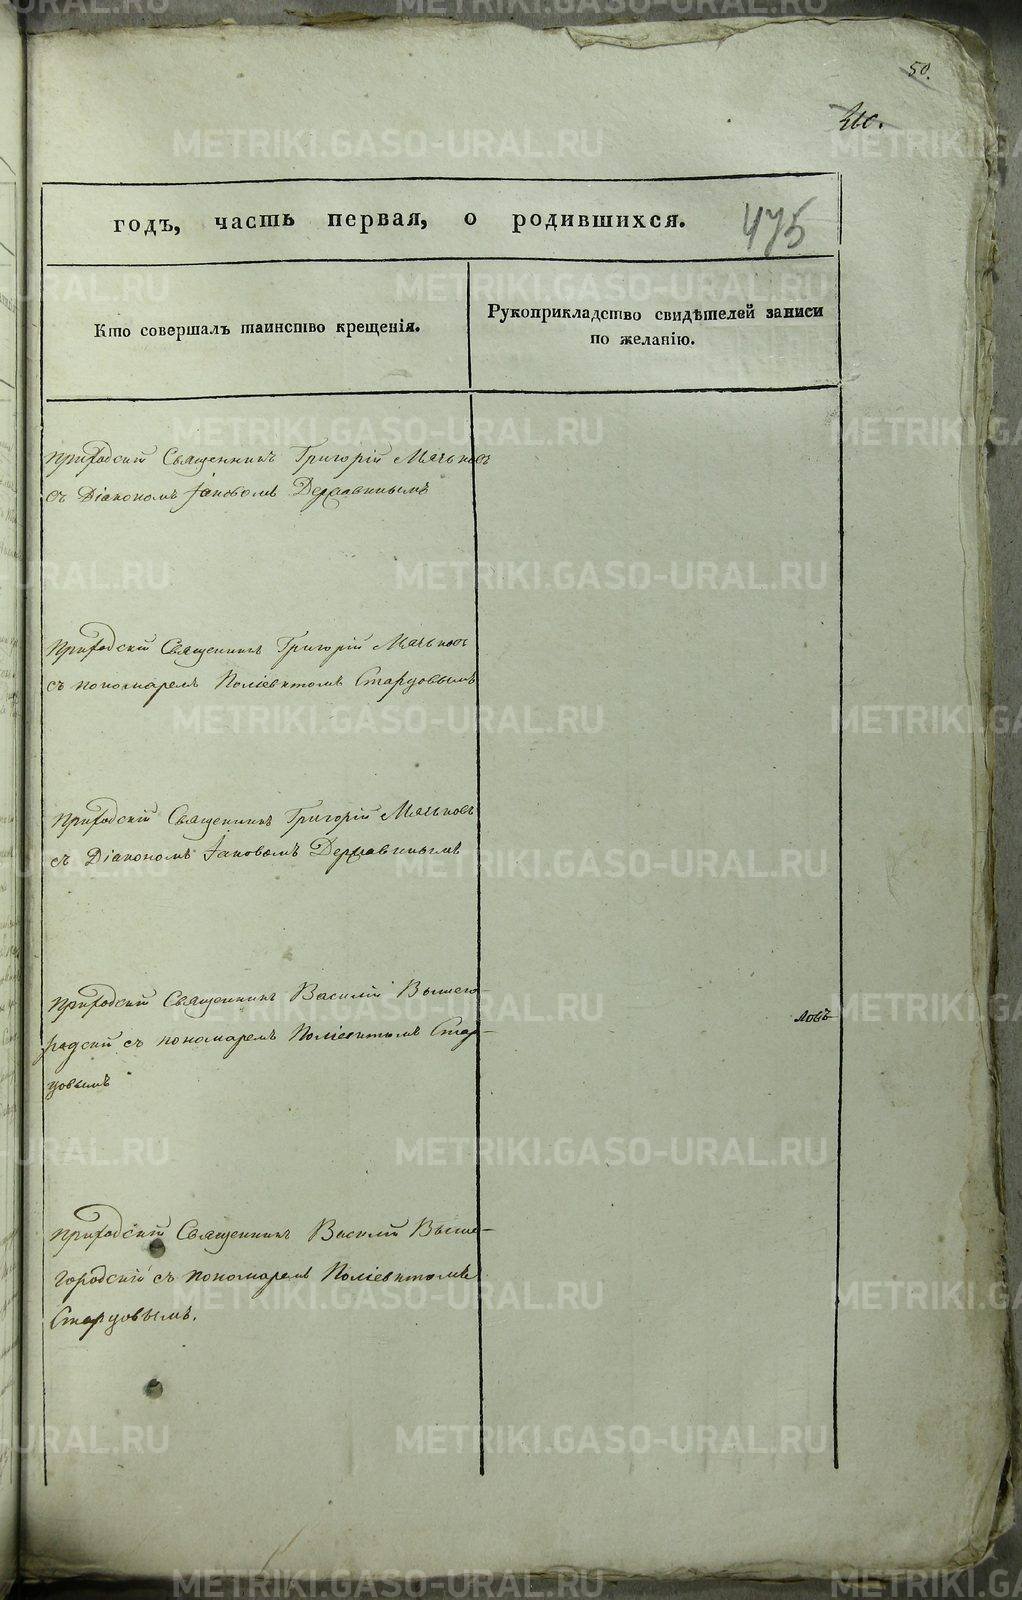 50.
475
годъ, часть первая, о родившихся.
Кто совершалъ таинство крещенія.
Рукоприкладство свидѣтелей записи
по желанію.
Приходскій Священникъ Григорій Мячьковъ
съ Діакономъ Іаковомъ Державинымъ
Приходскій Священникъ Григорій Мячьковъ
съ пономаремъ Поліевктомъ Старцовымъ
Приходскій Священникъ Григорій Мячьковъ
съ Діакономъ Іаковомъ Державинымъ
Приходскій Священникъ Василій Вышего-
родскій съ пономаремъ Поліевктомъ Стар-
цовымъ
ловъ
Приходскій Священникъ Василій Выше-
городскій съ пономаремъ Поліевктомъ
Старцовымъ.
METRIKI.GASO-URAL.RU